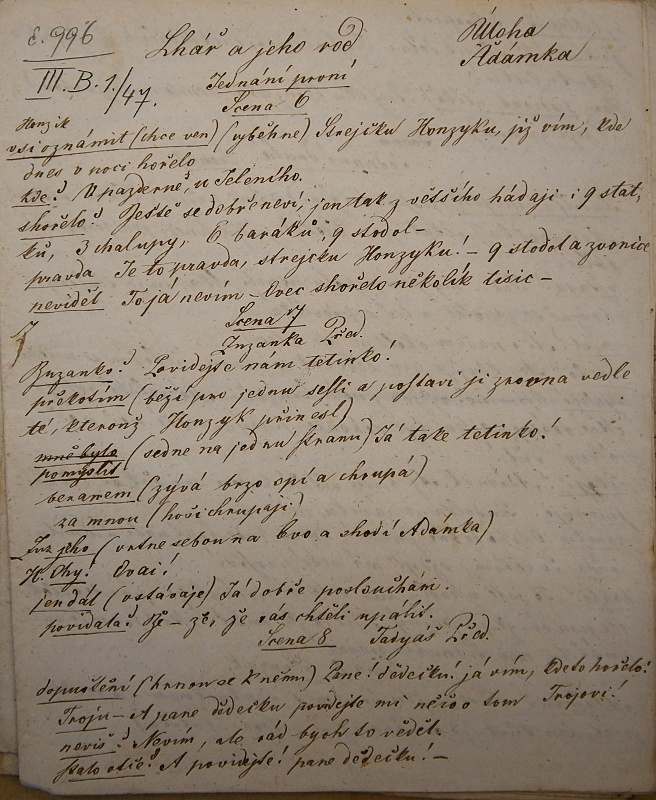 č. 996
Lhář a jeho rod
Úloha
Adámka
III. B. 1/47.
Jednání první
Scena 6
Honzik
vsi oznámit (chce ven) (vyběhne) Strejčku Honzyku, již vím, kde
dnes v noci hořelo
kde? U pazderně, u Jeleního.
shořelo? Ještě se dobře neví, jen tak z většího hádají i 9 stat,
ků, 3 chalupy, 6 baráků, 9 stodol –
pravda Je to pravda, strejčku Honzyku! – 9 stodol a zvonice
neviděl To já nevím – Ovec shořelo několik tisíc –
Scena 7
Zuzanka Před.
Zuzanko? Povidejte nám tetinko!
překotím (běží pro jednu sesli a postaví ji zrovna vedle
té, kterouž Honzyk přinesl)
mně bylo (sedne na jednu stranu) Já take tetinko!
pomyslit
beranem (zývá brzo spí a chrupá)
za mnou (hoši chrupají)
Zuz jeho (vrtne sebou na bvo a shodí Adámka)
H. Ohy! Ovai!
jendál (vstávaje) Já dobře poslouchám.
povídala? Že – že, že vás chtěli upálit.
Scena 8 Tadyáš Před.
dopuštění (hrnou se k němu) Pane! dědečku! já vím, kde to hořelo!
Troju – A pane dědečku povidejte mi něco o tom Trojovi!
nevíš? Nevím, ale rád bych to věděl.
stalo otče? A povidejte! pane dědečku! –